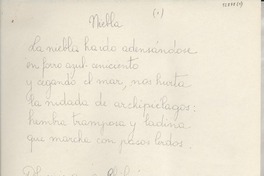 Niebla
(1)
La niebla ha ido adensándose
en forro azul-ceniciento
y cegando el mar, nos hurta
la nidada de archipiélagos:
hembra tramposa y ladina
que marcha con pasos lerdos.